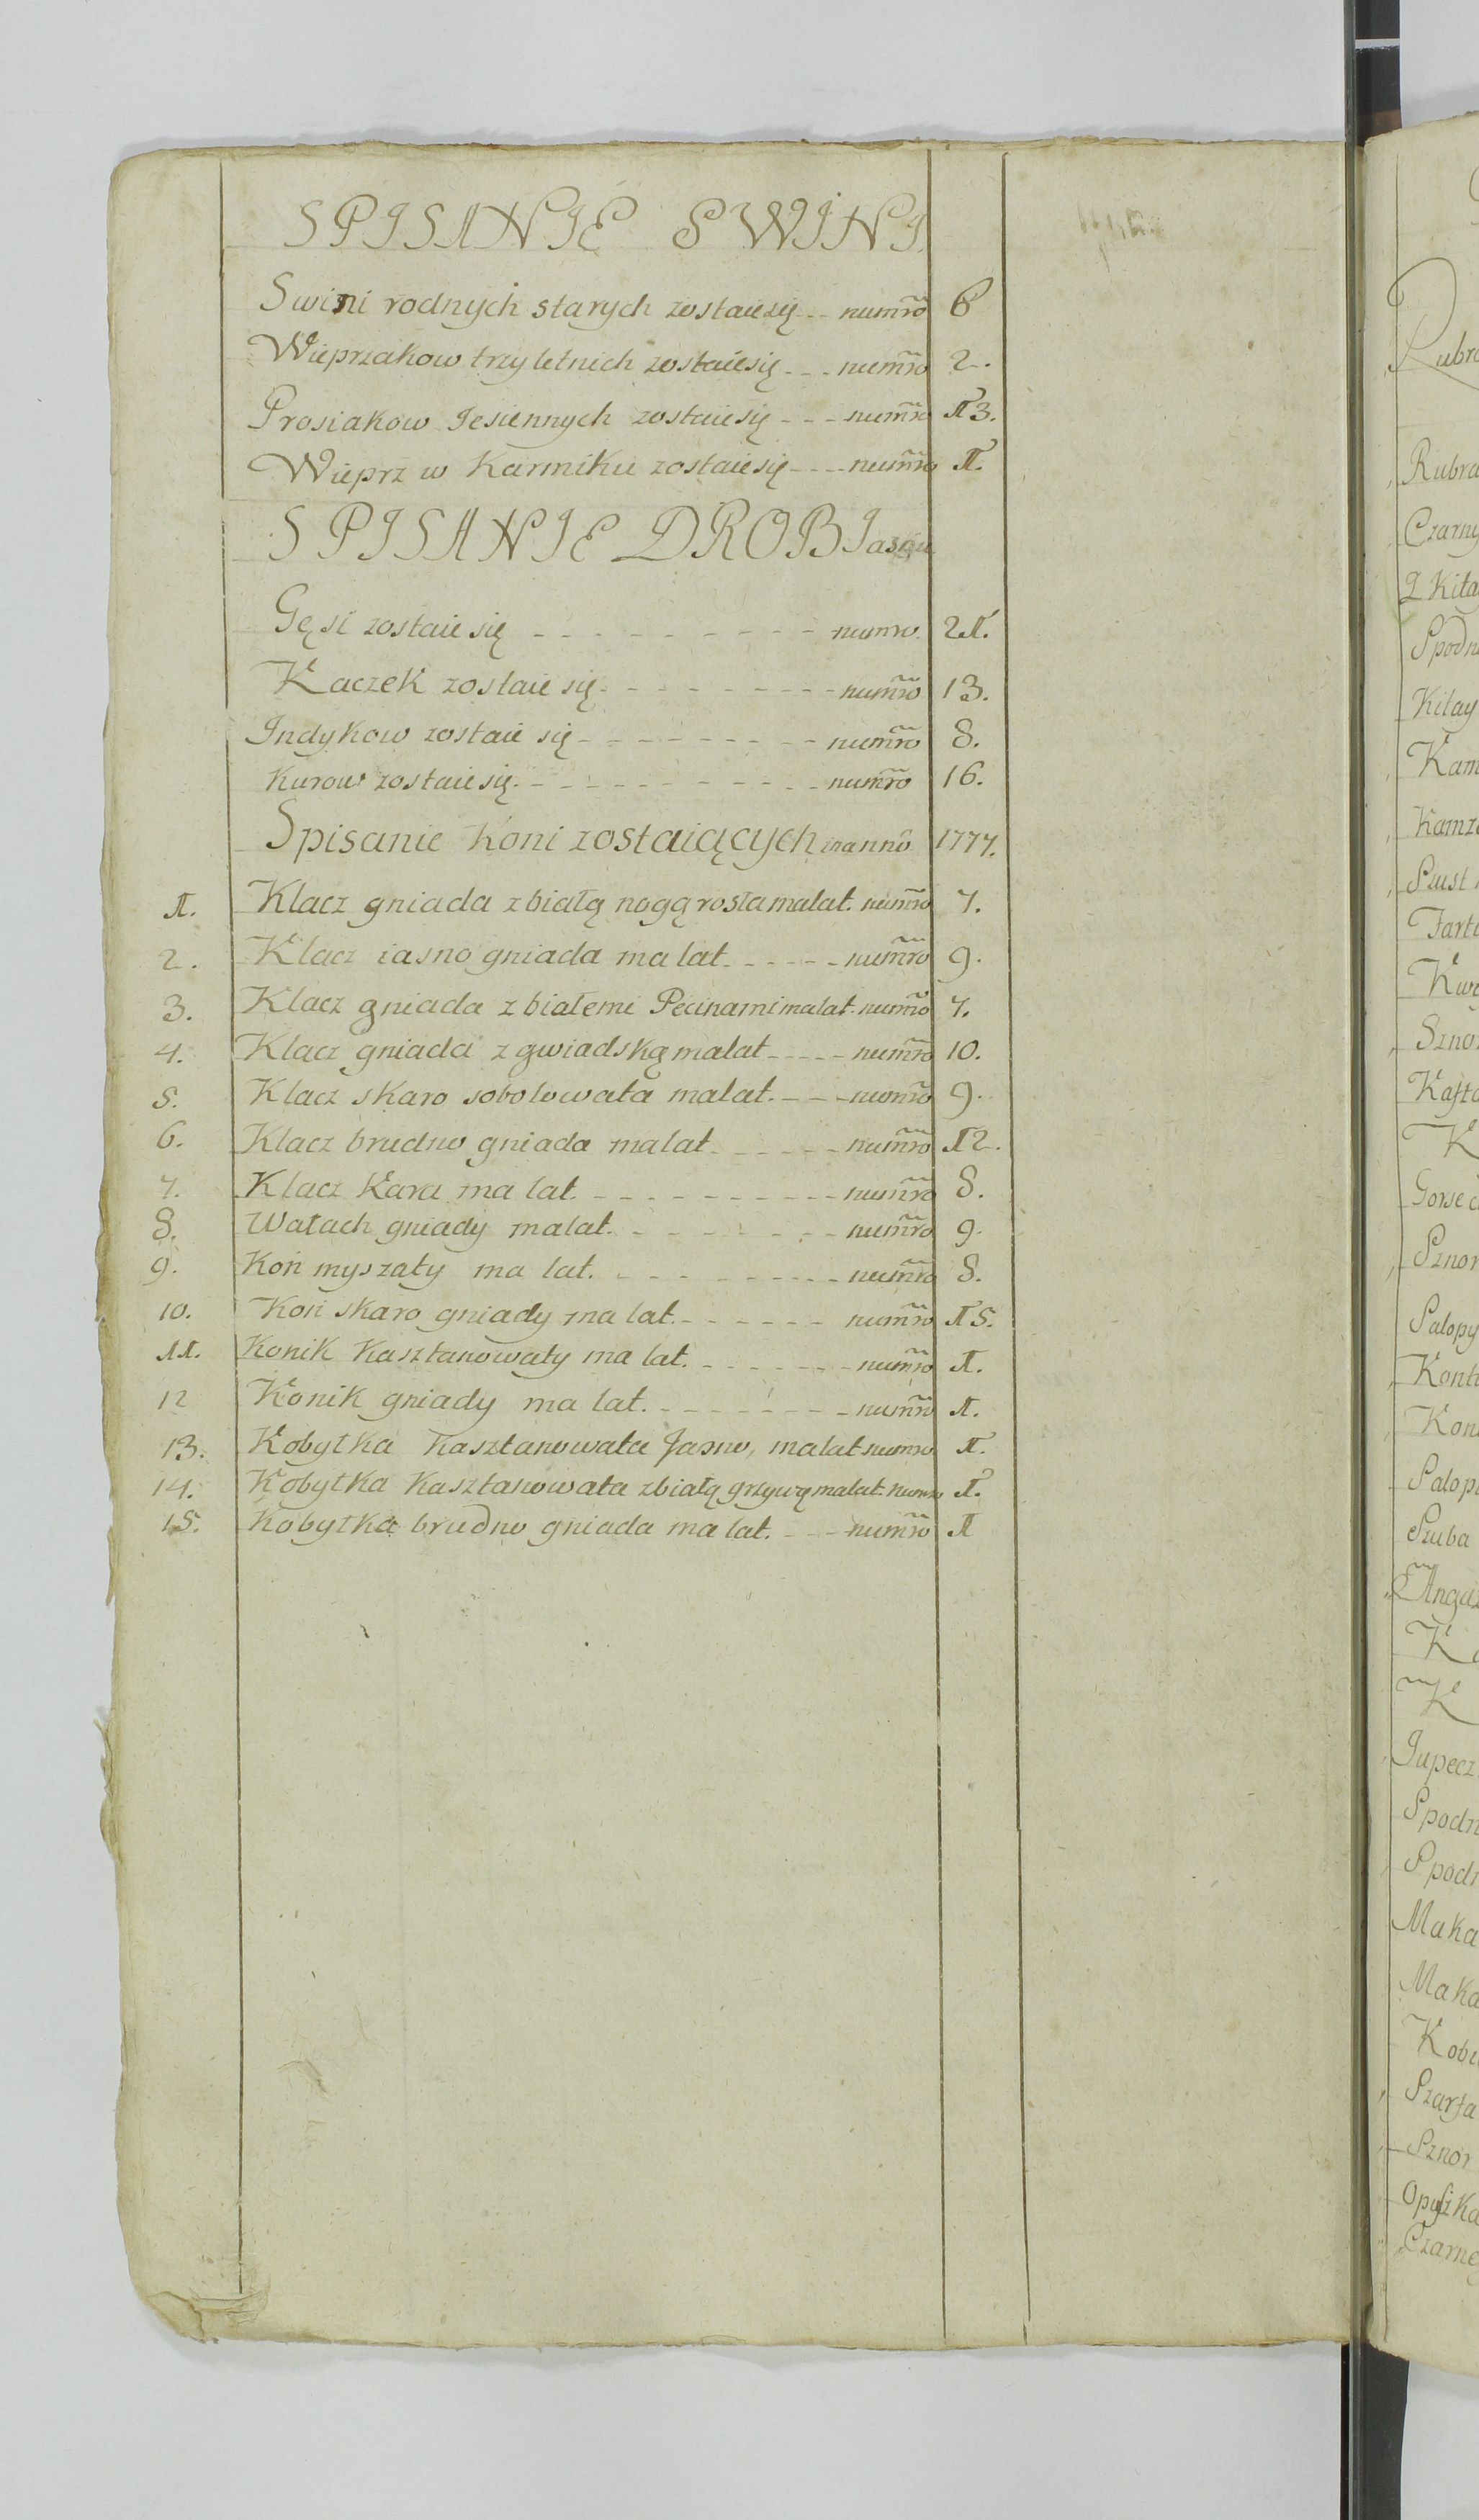 SPISANIE SWINI
Swini rodnych starych zostaie się numro 6
Wieprzakow trzy letnich zostaie się numro 2.
Prosiakow Jesiennych zostaie się numro 13.
Wieprz w Karmiku zostaie się numro 1.
SPISANIE DROBIazgu
Gęsi zostaie się numro. 21.
Kaczek zostaie się numro 13.
Indykow zostaie się numro 8.
Kurow zostaie się numro 16.
Spisanie Koni zostaiących in anno 1777.
1. Klacz gniada z białą nogą rosła ma lat. numro 7.
2. Klacz iasno gniada ma lat numro 9.
3. Klacz gniada z białemi Pecinami ma lat numro 7.
4. Klacz gniada z gwiadską ma lat numro 10.
5. Klacz skaro sobolowata ma lat. numro 9.
6. Klacz brudno gniada ma lat numro 12.
7. Klacz Kara ma lat. numro 8.
8. Wałach gniady ma lat. numro 9.
9. Koń myszaty ma lat. numro 8.
10. Koń skaro gniady ma lat. numro 15.
11. Konik Kasztanowaty ma lat. numro 1.
12 Konik gniady ma lat. numro 1.
13. Kobyłka Kasztanowata Jasno, ma lat numro 1.
14. Kobyłka Kasztanowata z białą grzywą ma lat. numro 1.
15. Kobyłka brudno gniada ma lat. numro 1
Rubra
Czarny
Kilay
Kamz
Sznor
Gorse
Sznor
Salopy
Kont
Salop
Szuba
Jupecz
Spodn
Spodn
Maka
Maka
Szarfa
Sznor
Czarne